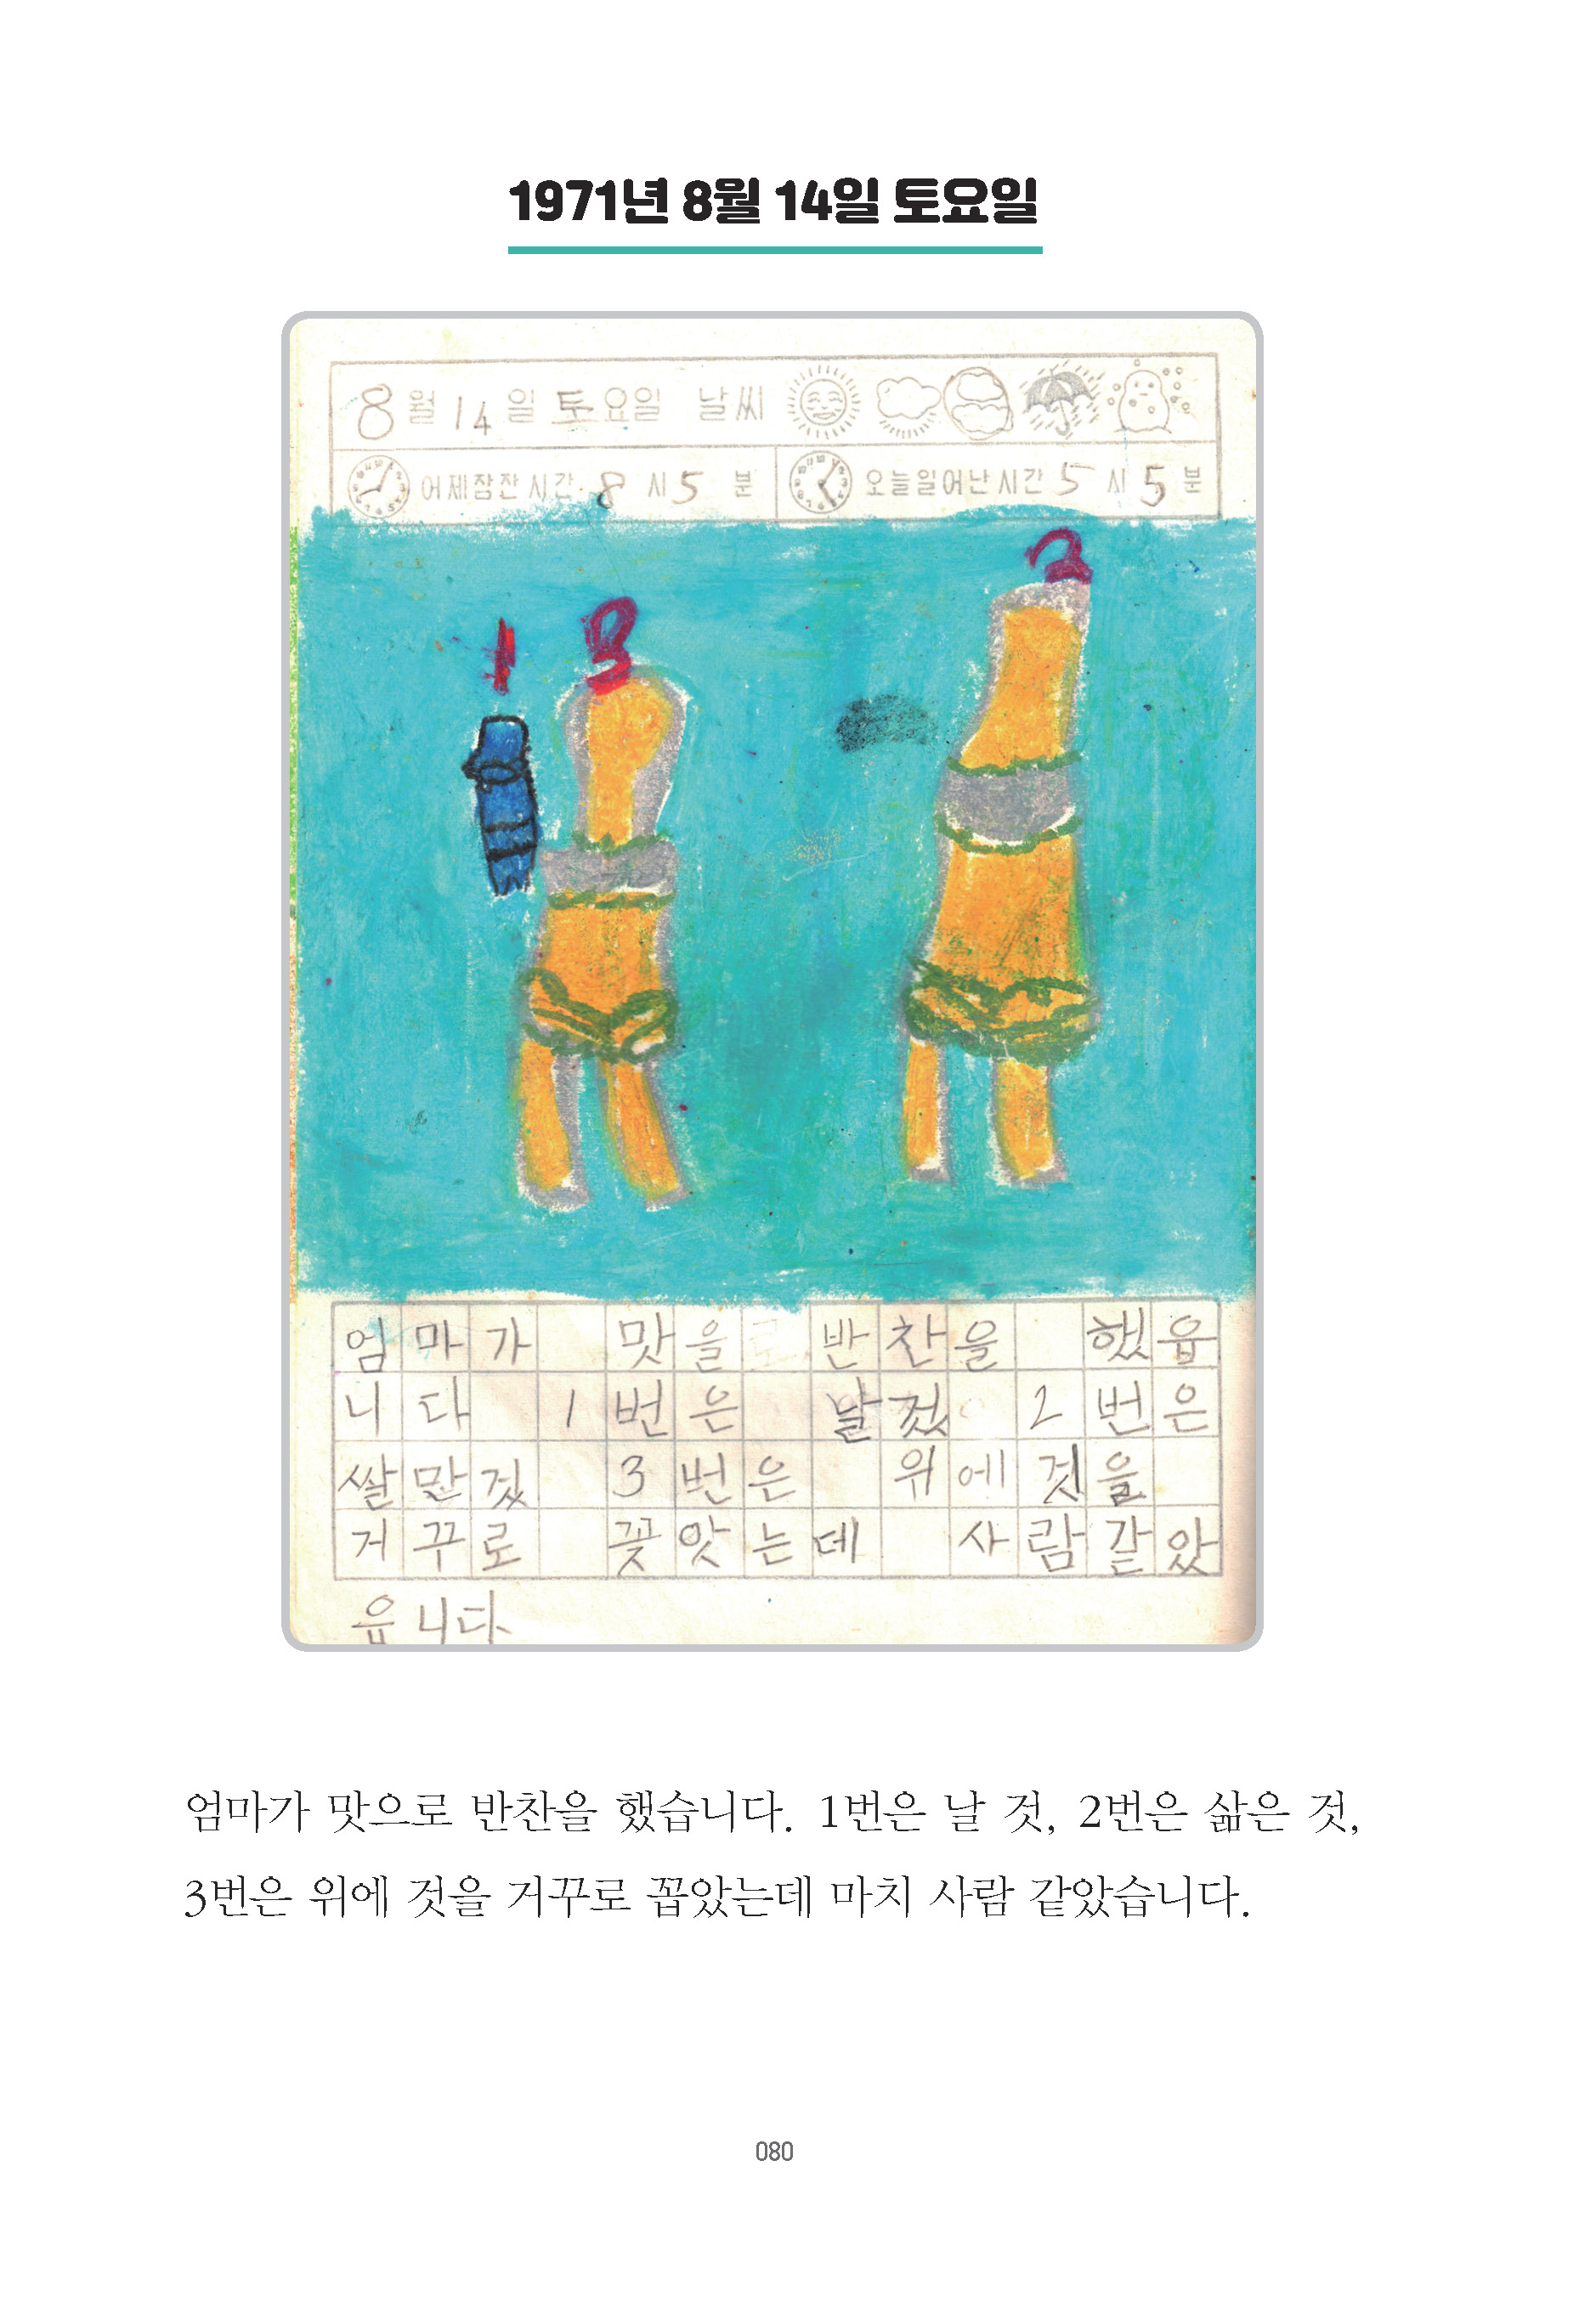 1971년 8월 14일 토요일
8월 14일 토요일 날씨
어제잠잔시간 8시 5분 오늘일어난시간 5시 5분
1
2
3
엄마가 맛을 반찬을 했읍
니다 1번은 날것 2번은
쌀만것 3번은 위에것을
거꾸로 꽃앗는데 사람갇았
읍니다
엄마가 맛으로 반찬을 했습니다. 1번은 날 것, 2번은 삶은 것,
3번은 위에 것을 거꾸로 꼽았는데 마치 사람 같았습니다.
080